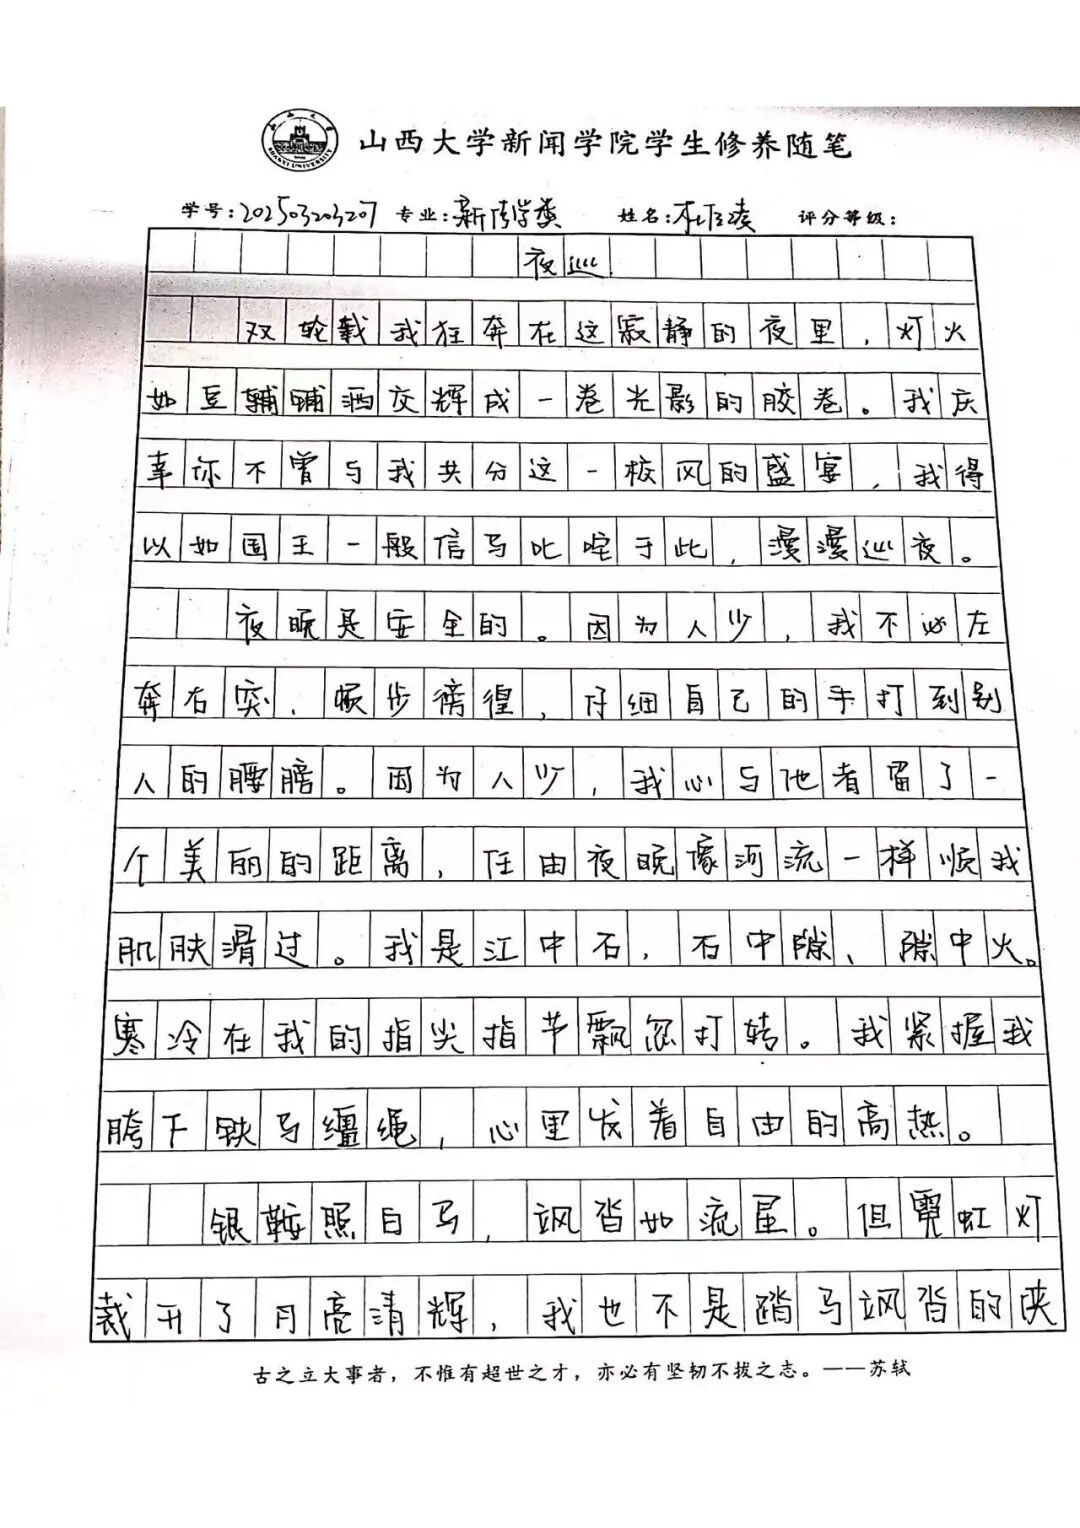 山西大学新闻学院学生修养随笔
学号：202503203207 专业：新传学类 姓名： 评分等级：
夜巡
双轮载我狂奔在这寂静的夜里，灯火
如豆辅晡洒交辉成一卷光影的胶卷。我庆
幸你不曾与我共分这一极风的盛宴，我得
以如国王一般信马叱咤于此，漫漫巡夜。
夜晚是安全的。因为人少，我不必左
奔右突、缓步徬徨，仔细自己的手打到别
人的腰膀。因为人少，我心与他者留了一
个美丽的距离，任由夜晚像河流一样顺我
肌肤滑过。我是江中石，石中隙、隙中火。
寒冷在我的指尖指节飘忽打转。我紧握我
胯下铁马缰绳，心里发着自由的高热。
银鞍照白马，飒沓如流星。但霓虹灯
裁开了月亮清辉，我也不是踏马飒沓的侠
古之立大事者，不惟有超世之才，亦必有坚韧不拔之志。——苏轼